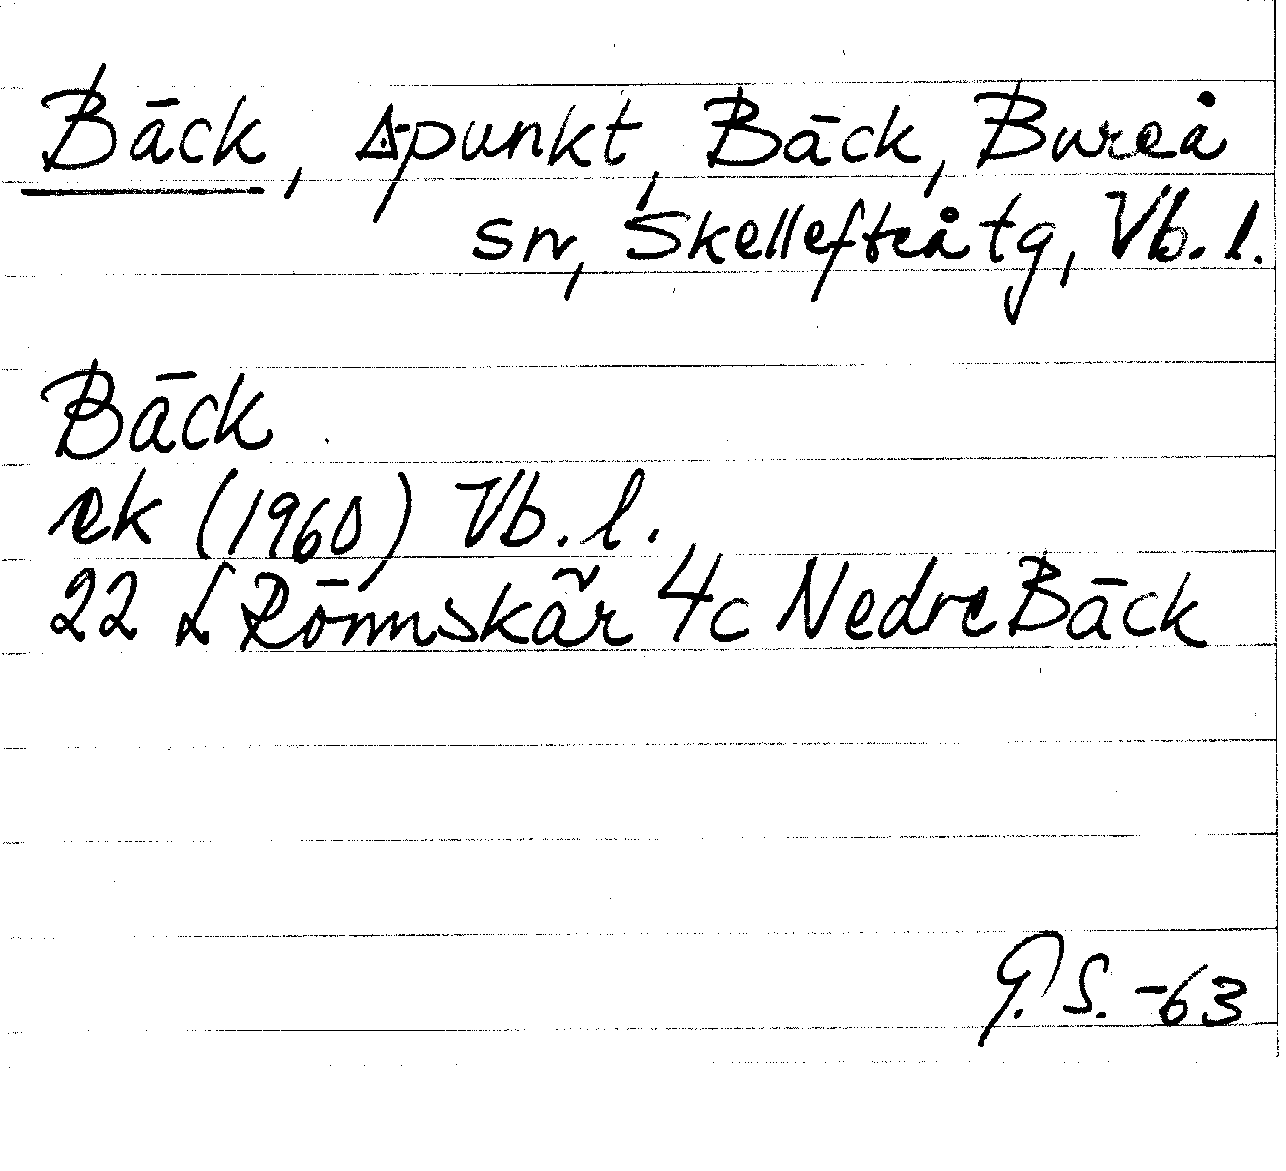 Bäck, △punkt, Bäck, Bureå
sn, Skellefteå tg, Vb. l.
Bäck
ek (1960) Vb. l.
22 L Rönnskär 4c Nedre Bäck
G. S. -63